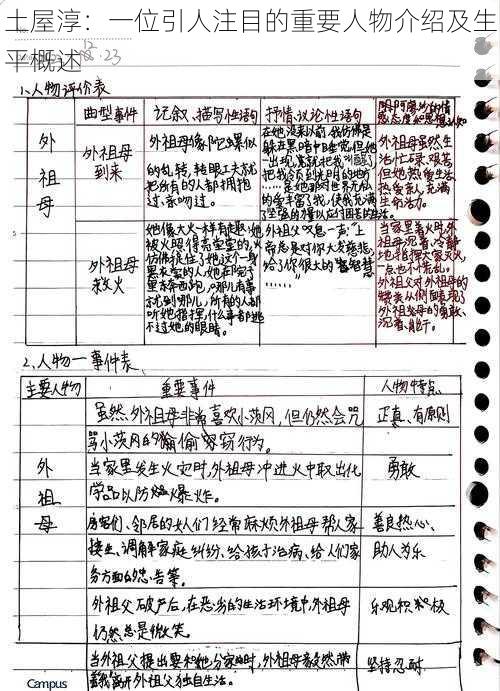 土屋淳：一位引人注目的重要人物介绍及生
平概述
12.23
1.人物评价表
典型事件
记叙、描写性语句
抒情、议论性语句
外
祖
母
外祖母
到来
外祖母像陀螺似
的乱转,转眼工夫就
把所有的人都拥抱
过、亲吻过。
在她没来以前,我仿佛是
躲在黑暗中睡觉,但她
一出现,就把我叫醒了
把我领到光明的地方
外祖母虽然生
活忙碌、艰苦
但她热爱生活
热爱亲人,充满
生命活力。
外祖母
救火
她像大火一样有趣,她
被火照得亮堂堂的,火
所有的人都
听她指挥,什么事都逃
不过她的眼睛。
外祖父叹息一声:“上
帝总是对你大发慈悲,
给了你很大的智慧
……”
当家里着火时,外
祖母沉着、冷静
地指挥大家灭火
一点也不慌乱。
外祖父对外祖母的
侧面表现了
外祖母的勇敢、
沉着、能干。
2.人物一事件表
主要人物
重要事件
人物特点
外
祖
母
虽然外祖母非常喜欢小茨冈,但仍然会咒
骂小茨冈的偷窃行为。
正直、有原则
当家里发生火灾时,外祖母冲进火中取出化
学品以防爆炸。
勇敢
房客们、邻居的女人们经常麻烦外祖母帮人家
接生、调解家庭纠纷、给孩子治病、给人们家
务方面的忠告等。
善良热心、
助人为乐
外祖父破产后,在恶劣的生活环境中,外祖母
仍然总是微笑。
乐观积极
当外祖父提出要和她分家时,外祖母毅然带
着我离开外祖父独自生活。
坚持忍耐
Campus